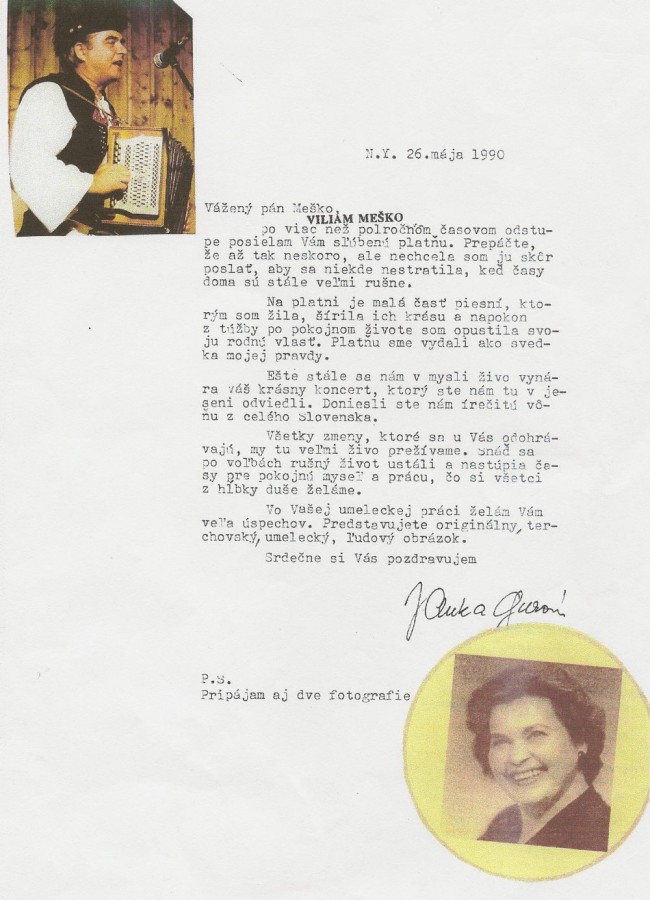 N.Y. 26.mája 1990
Vážený pán Meško,
VILIAM MEŠKO
po viac než polročnom časovom odstu-
pe posielam Vám sľúbenú platňu. Prepáčte,
že až tak neskoro, ale nechcela som ju skôr
poslať, aby sa niekde nestratila, keď časy
doma sú stále veľmi rušne.
Na platni je malá časť piesní, kto-
rým som žila, šírila ich krásu a napokon
z túžby po pokojnom živote som opustila svo-
ju rodnú vlasť. Platňu sme vydali ako sved-
ka mojej pravdy.
Ešte stále sa nám v mysli živo vyná-
ra váš krásny koncert, ktorý ste nám tu v je-
seni odviedli. Doniesli ste nám írečitú vô-
ňu z celého Slovenska.
Všetky zmeny, ktoré sa u Vás odohrá-
vajú, my tu veľmi živo prežívame. Snáď sa
po voľbách rušný život ustáli a nastúpia ča-
sy pre pokojnú myseľ a prácu, čo si všetci
z hĺbky duše želáme.
Vo Vašej umeleckej práci želám Vám
veľa úspechov. Predstavujete originálny, ter-
chovský, umelecký, ľudový obrázok.
Srdečne si Vás pozdravujem
Janka Guzoň
P.S.
Pripájam aj dve fotografie